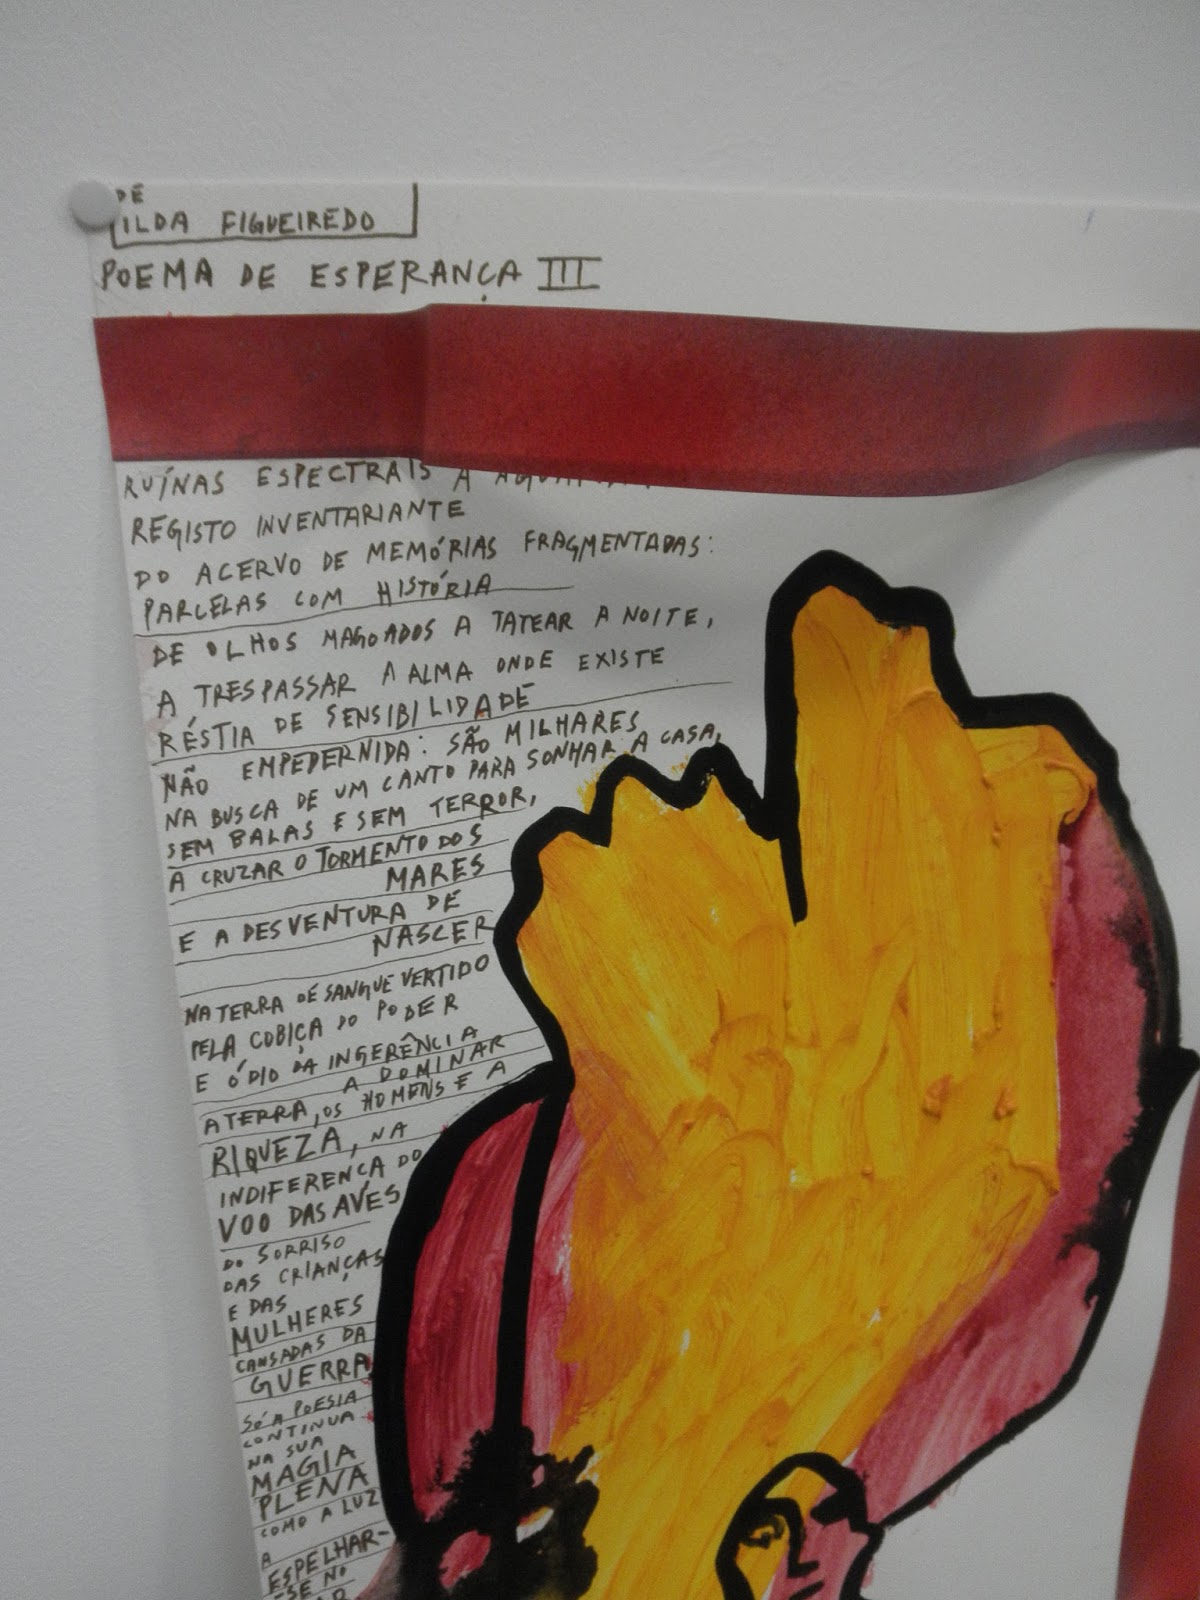 DE
ILDA FIGUEIREDO
POEMA DE ESPERANÇA III
RUÍNAS ESPECTRAIS A
REGISTO INVENTARIANTE
DO ACERVO DE MEMÓRIAS FRAGMENTADAS:
PARCELAS COM HISTÓRIA
DE OLHOS MAGOADOS A TATEAR A NOITE,
A TRESPASSAR A ALMA ONDE EXISTE
RÉSTIA DE SENSIBILIDADE
NÃO EMPEDERNIDA: SÃO MILHARES
NA BUSCA DE UM CANTO PARA SONHAR A CASA,
SEM BALAS E SEM TERROR,
A CRUZAR O TORMENTO DOS
MARES
E A DESVENTURA DE
NASCER
NA TERRA DE SANGUE VERTIDO
PELA COBIÇA DO PODER
E ÓDIO DA INGERÊNCIA
A DOMINAR
A TERRA, OS HOMENS E A
RIQUEZA, NA
INDIFERENÇA DO
VOO DAS AVES
DO SORRISO
DAS CRIANÇAS
E DAS
MULHERES
CANSADAS DA
GUERRA
SÓ A POESIA
CONTINUA
NA SUA
MAGIA
PLENA
COMO A LUZ
A
ESPELHAR-
-SE NO